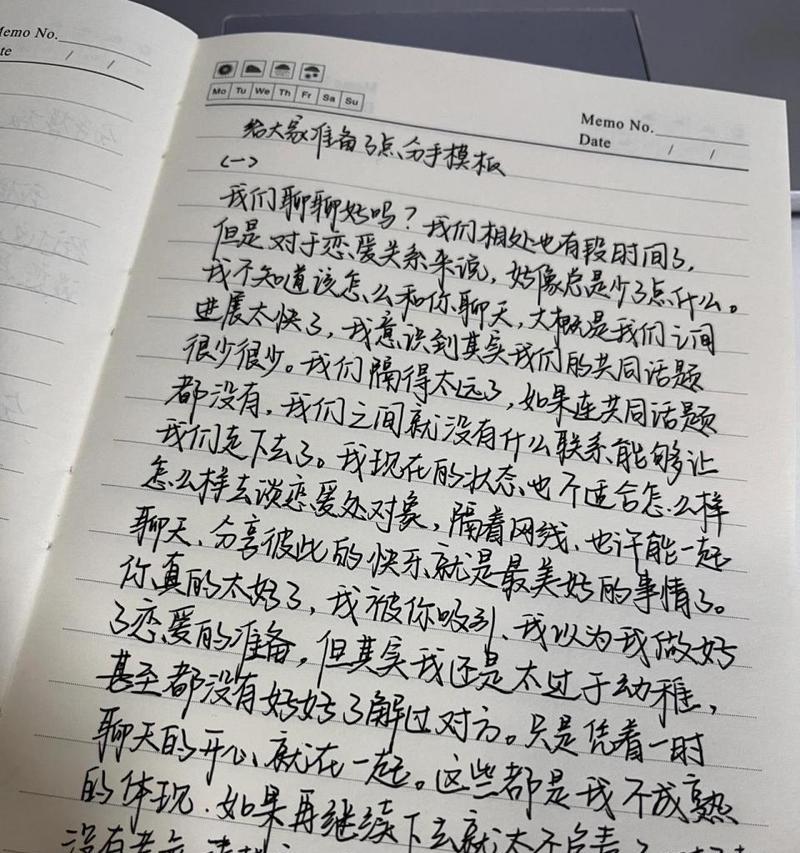 Memo No.
Date / /
Mo Tu We Th Fr Sa Su
Memo No.
Date / /
给大家准备了点分手模板
(一)
我们聊聊好吗？我们相处也有段时间了，
但是对于恋爱关系来说，好像总是少了点什么。
我不知道该怎么和你聊天，大概是我们之间
进展太快了，我意识到其实我们的共同话题
很少很少。我们隔得太远了，如果连共同话题
都没有，我们之间就没有什么联系能够让
我们走下去了。我现在的状态也不适合怎么样
怎么样去谈恋爱处对象，隔着网线、也许能一起
聊天、分享彼此的快乐就是最美好的事情了。
你真的太好了，我被你吸引、我以为我做好
了恋爱的准备，但其实我还是太过于幼稚，
甚至都没有好好了解过对方。只是凭着一时
聊天的开心、就在一起。这些都是我不成熟
的体现．如果再继续下去就太不负责了
没有